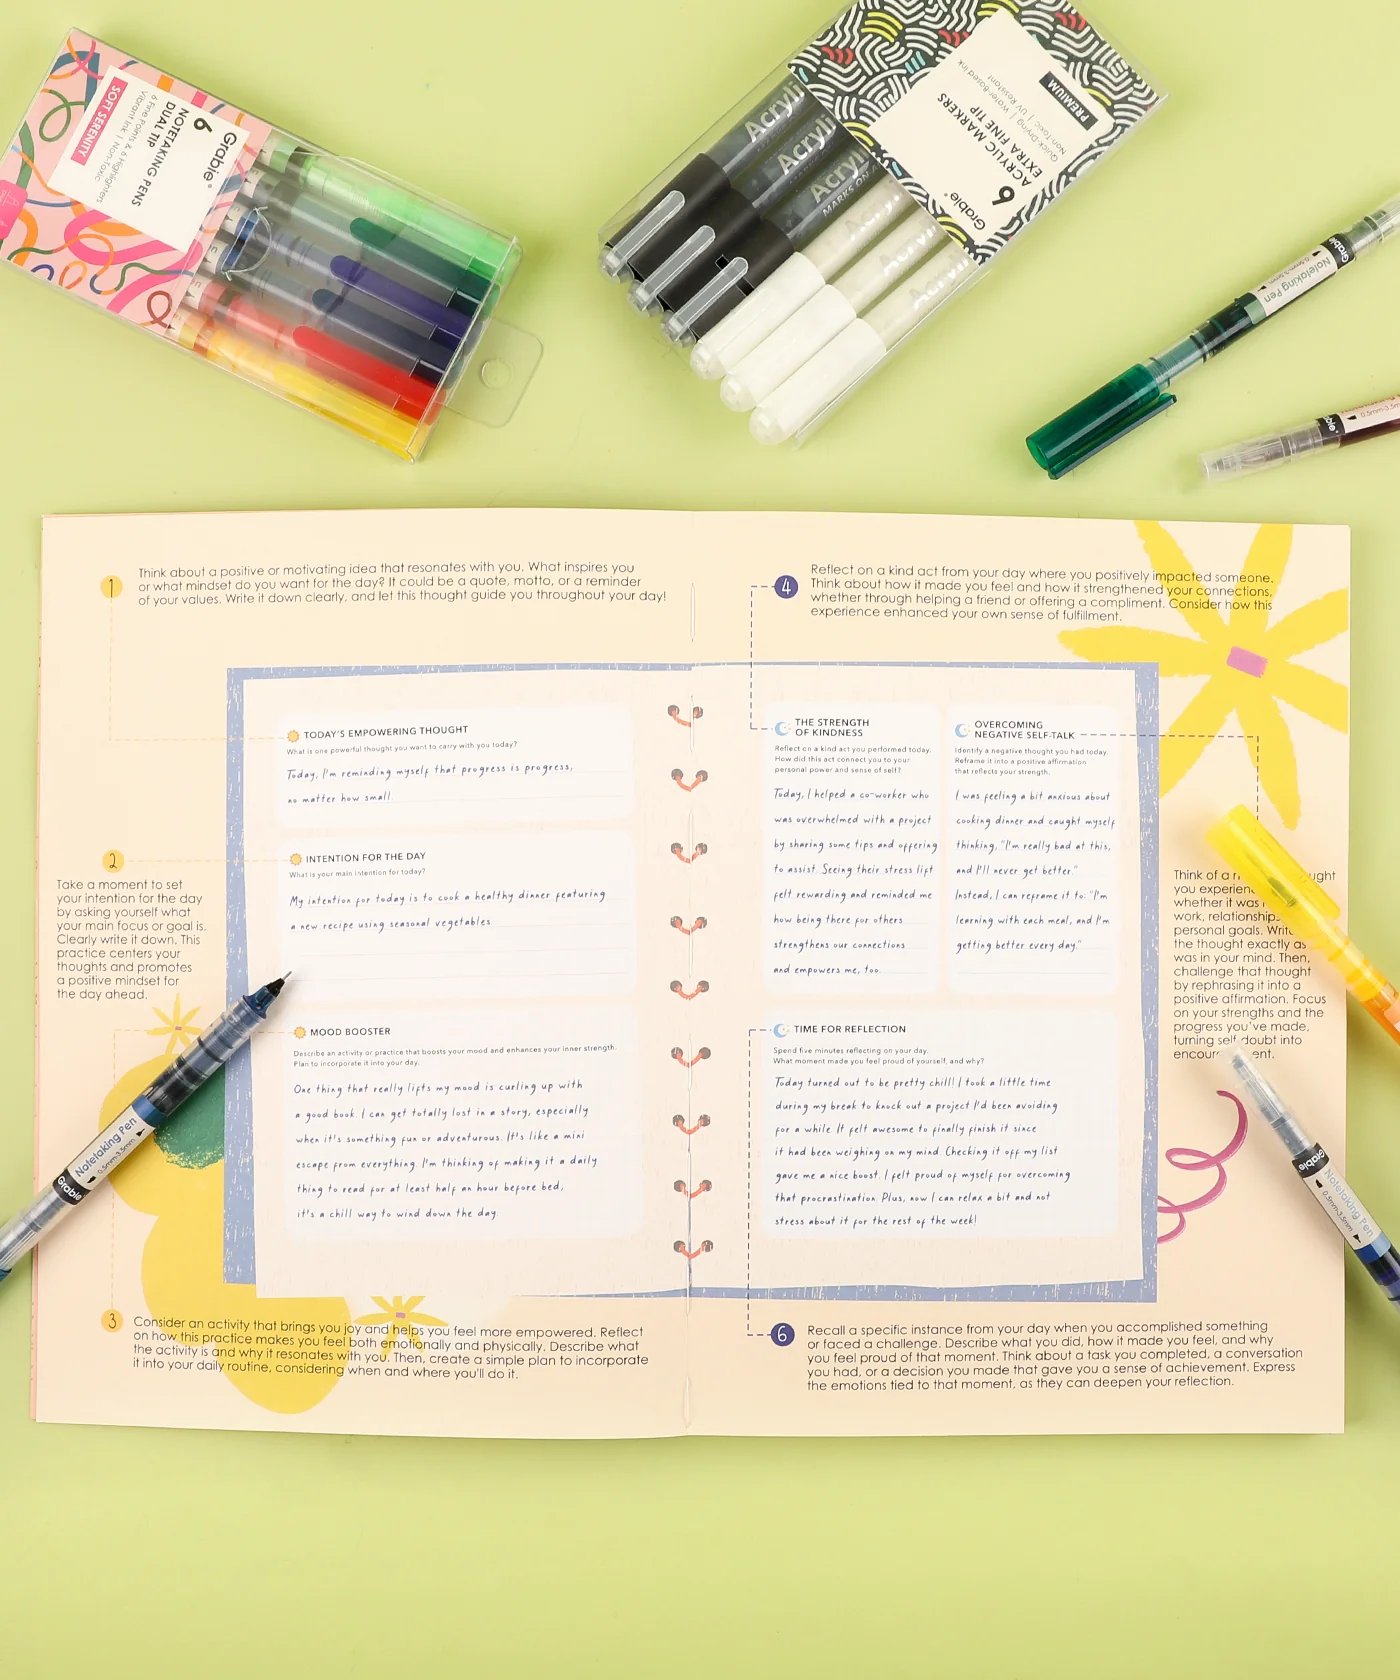 Grabie
6
NOTETAKING PENS
DUAL TIP
6 Fine Points & 6 Highlighters
Vibrant Ink | Non-Toxic
SOFT SERENITY
Grabie
6
ACRYLIC MARKERS
EXTRA FINE TIP
Quick-Drying | Water-Based Ink
Non-Toxic | UV Resistant
PREMIUM
Acryli
Acryli
Acryli
MARKS ON A
Grabie
Notetaking Pen
0.5mm-3.5mm
1
Think about a positive or motivating idea that resonates with you. What inspires you
or what mindset do you want for the day? It could be a quote, motto, or a reminder
of your values. Write it down clearly, and let this thought guide you throughout your day!
TODAY'S EMPOWERING THOUGHT
What is one powerful thought you want to carry with you today?
Today, I'm reminding myself that progress is progress,
no matter how small.
2
Take a moment to set
your intention for the day
by asking yourself what
your main focus or goal is.
Clearly write it down. This
practice centers your
thoughts and promotes
a positive mindset for
the day ahead.
INTENTION FOR THE DAY
What is your main intention for today?
My intention for today is to cook a healthy dinner featuring
a new recipe using seasonal vegetables
MOOD BOOSTER
Describe an activity or practice that boosts your mood and enhances your inner strength.
Plan to incorporate it into your day.
One thing that really lifts my mood is curling up with
a good book. I can get totally lost in a story, especially
when it's something fun or adventurous. It's like a mini
escape from everything. I'm thinking of making it a daily
thing to read for at least half an hour before bed,
it's a chill way to wind down the day.
3
Consider an activity that brings you joy and helps you feel more empowered. Reflect
on how this practice makes you feel both emotionally and physically. Describe what
the activity is and why it resonates with you. Then, create a simple plan to incorporate
it into your daily routine, considering when and where you'll do it.
4
Reflect on a kind act from your day where you positively impacted someone.
Think about how it made you feel and how it strengthened your connections,
whether through helping a friend or offering a compliment. Consider how this
experience enhanced your own sense of fulfillment.
THE STRENGTH
OF KINDNESS
Reflect on a kind act you performed today.
How did this act connect you to your
personal power and sense of self?
Today, I helped a co-worker who
was overwhelmed with a project
by sharing some tips and offering
to assist. Seeing their stress lift
felt rewarding and reminded me
how being there for others
strengthens our connections
and empowers me, too.
OVERCOMING
NEGATIVE SELF-TALK
Identify a negative thought you had today.
Reframe it into a positive affirmation
that reflects your strength.
I was feeling a bit anxious about
cooking dinner and caught myself
thinking, "I'm really bad at this,
and I'll never get better."
Instead, I can reframe it to: "I'm
learning with each meal, and I'm
getting better every day."
Think of a
you
whether it was
work, relationships
personal goals.
the thought exactly as
was in your mind. Then,
challenge that thought
by rephrasing it into a
positive affirmation. Focus
on your strengths and the
progress you've made,
turning self doubt into
TIME FOR REFLECTION
Spend five minutes reflecting on your day.
What moment made you feel proud of yourself, and why?
Today turned out to be pretty chill! I took a little time
during my break to knock out a project I'd been avoiding
for a while. It felt awesome to finally finish it since
it had been weighing on my mind. Checking it off my list
gave me a nice boost. I felt proud of myself for overcoming
that procrastination. Plus, now I can relax a bit and not
stress about it for the rest of the week!
6
Recall a specific instance from your day when you accomplished something
or faced a challenge. Describe what you did, how it made you feel, and why
you feel proud of that moment. Think about a task you completed, a conversation
you had, or a decision you made that gave you a sense of achievement. Express
the emotions tied to that moment, as they can deepen your reflection.
Grabie
Notetaking Pen
0.5mm-3.5mm
Grabie
Notetaking Pen
0.5mm-3.5mm